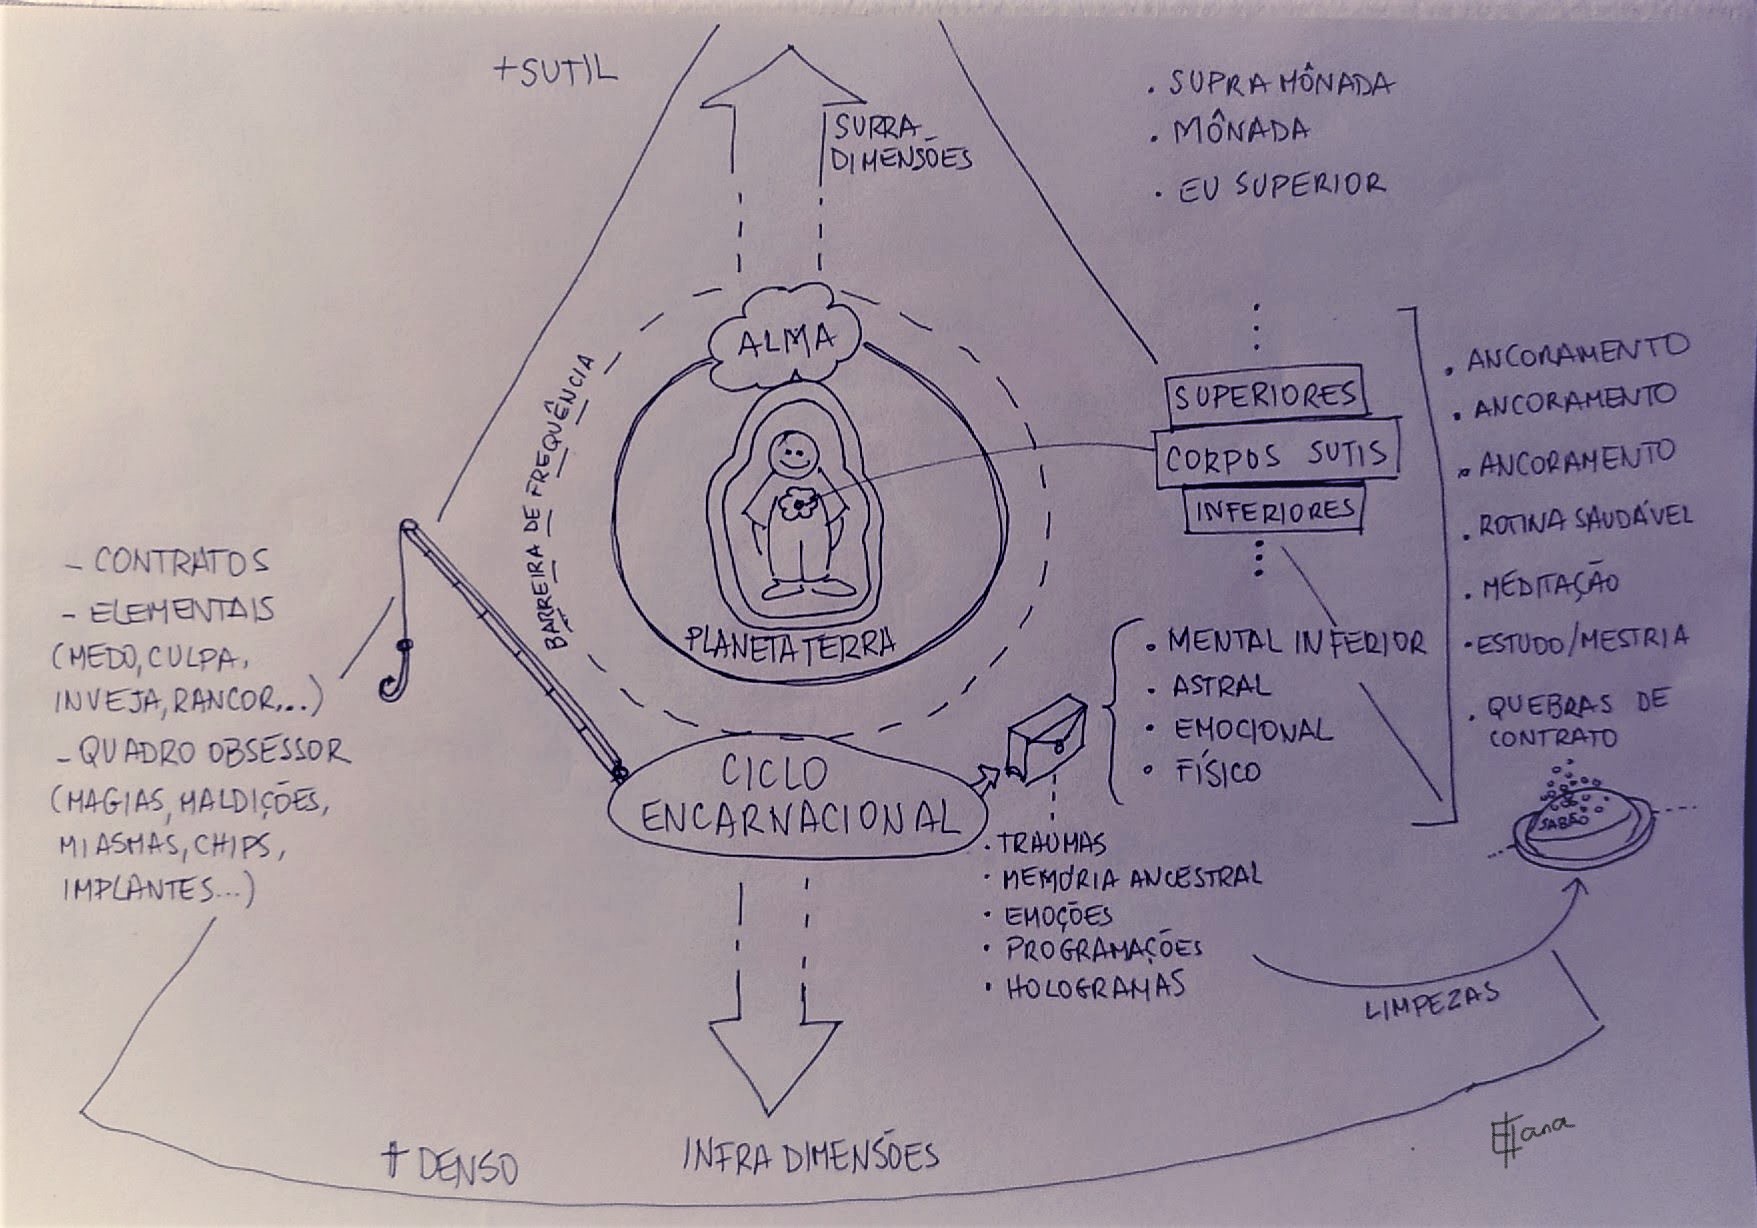 +SUTIL
SUPRA
DIMENSÕES
. SUPRA MÔNADA
. MÔNADA
. EU SUPERIOR
ALMA
BARREIRA DE FREQUÊNCIA
PLANETA TERRA
SUPERIORES
CORPOS SUTIS
INFERIORES
. ANCORAMENTO
. ANCORAMENTO
. ANCORAMENTO
. ROTINA SAUDÁVEL
. MEDITAÇÃO
. ESTUDO/MESTRIA
. QUEBRAS DE
CONTRATO
SABÃO
- CONTRATOS
- ELEMENTAIS
(MEDO, CULPA,
INVEJA, RANCOR,...)
- QUADRO OBSESSOR
(MAGIAS, MALDIÇÕES,
MIASMAS, CHIPS,
IMPLANTES...)
. MENTAL INFERIOR
. ASTRAL
. EMOCIONAL
. FÍSICO
CICLO
ENCARNACIONAL
. TRAUMAS
. MEMÓRIA ANCESTRAL
. EMOÇÕES
. PROGRAMAÇÕES
. HOLOGRAMAS
LIMPEZAS
+ DENSO
INFRA DIMENSÕES